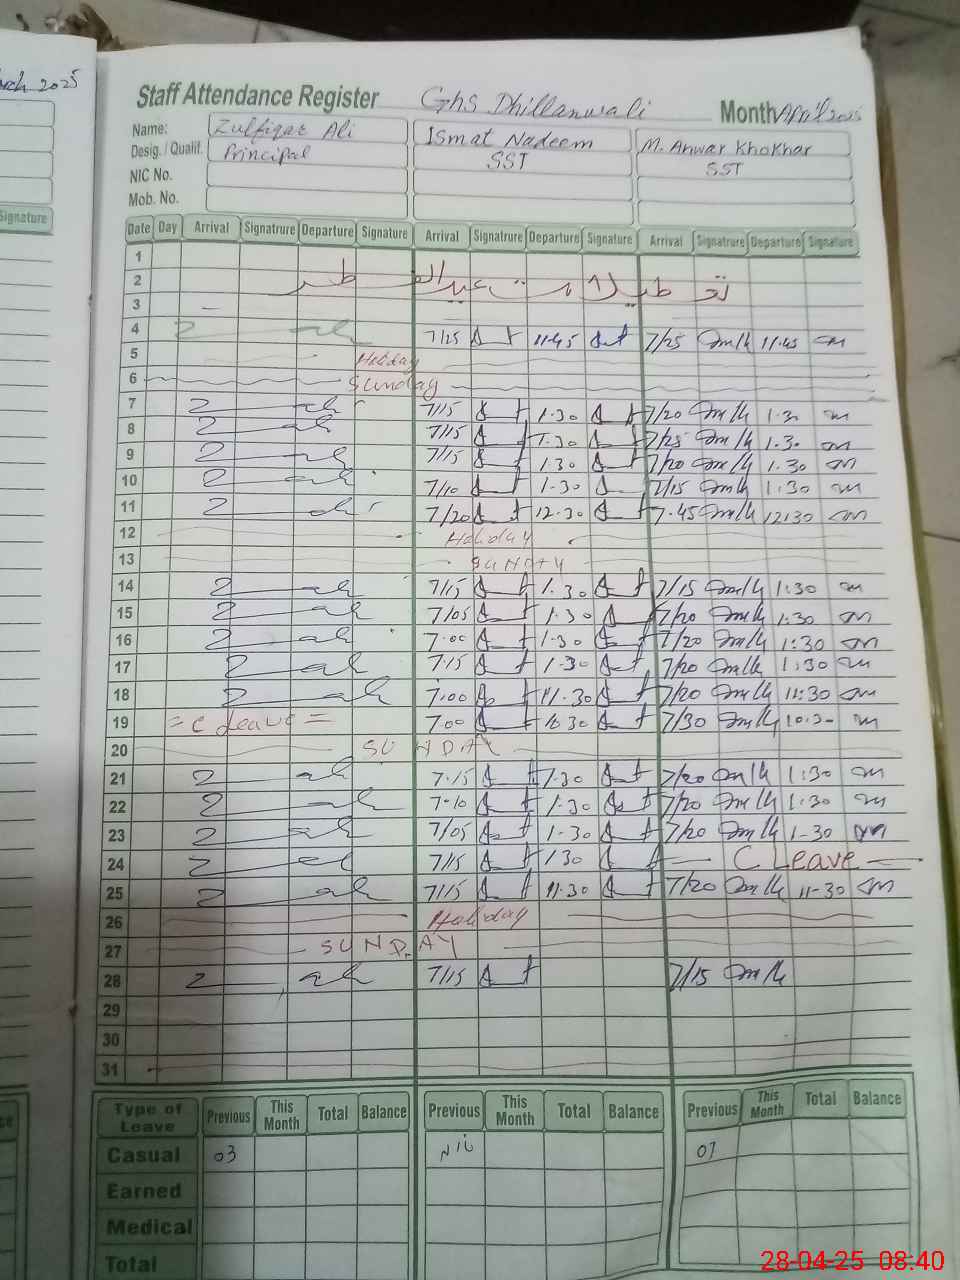 rch 2025
Signature
Staff Attendance Register Ghs Dhillanwali Month April 2025
Name: Zulfiqar Ali Ismat Nadeem M. Anwar Khokhar
Desig. / Qualif. Principal SST SST
NIC No.
Mob. No.
Date Day Arrival Signatrure Departure Signature Arrival Signatrure Departure Signature Arrival Signatrure Departure Signature
1
2 تعطیلات عیدالفطر
3
4 7/25 11:45 7/25 11.45
5 Holiday
6 Sunday
7 7/15 1.30 7/20 1.30
8 7/15 1.30 7/25 1.30
9 7/15 1.30 7/20 1.30
10 7/10 1-30 7/15 1:30
11 7/20 12.30 7.45 12:30
12 Holiday
13 SUNDAY
14 7/15 1.30 7/15 1:30
15 7/05 1.30 7/20 1:30
16 7.00 1.30 7/20 1:30
17 7.15 1-30 7/20 1:30
18 7.00 11.30 7/20 11:30
19 = C Leave = 7.00 10.30 7/30 10:30
20 SUNDAY
21 7.15 1.30 7/20 1:30
22 7.10 1.30 7/20 1:30
23 7/05 1-30 7/20 1-30
24 7/15 1 30 C Leave
25 7/15 11.30 7/20 11-30
26 Holiday
27 SUNDAY
28 7/15 7/15
29
30
31
Type of Leave Previous This Month Total Balance Previous This Month Total Balance Previous This Month Total Balance
Casual 03 Nil 01
Earned
Medical
Total
28-04-25 08:40